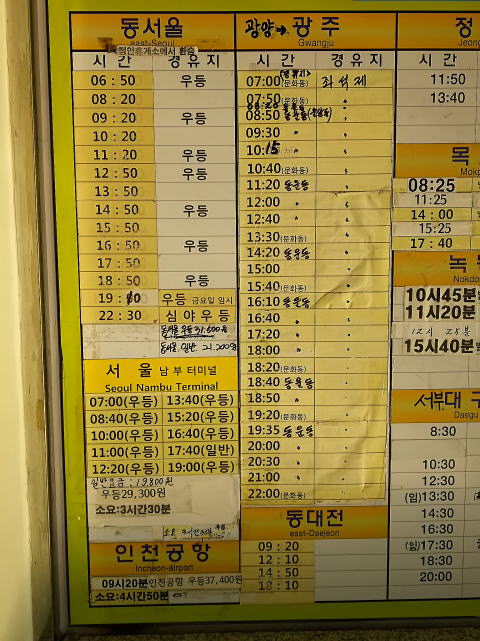 동서울
east-Seoul
정안휴게소에서 환승
시 간 경 유 지
06 : 50 우등
08 : 20
09 : 20 우등
10 : 20
11 : 20 우등
12 : 50 우등
13 : 50
14 : 50 우등
15 : 50
16 : 50 우등
17 : 50
18 : 50 우등
19 : 00 우등 금요일 임시
22 : 30 심야우등
동서울 우등 31,600원
동서울 일반 21,200원
서 울 남부터미널
Seoul Nambu Terminal
07:00(우등) 13:40(우등)
08:40(우등) 15:20(우등)
10:00(우등) 16:40(우등)
11:00(우등) 17:40(일반)
12:20(우등) 19:00(우등)
일반요금 : 19,800원
우등29,300원
소요:3시간30분
인천공항
Incheon-airport
09시20분인천공항 우등37,400원
소요:4시간50분
광양→광 주
Gwangju
시 간 경 유 지
07:00(문화동) 좌석제
07:50
08:50 동운동
09:30 〃
10:15
10:40(문화동)
11:20 동운동
12:00 〃
12:40 〃
13:30(문화동)
14:20 동운동
15:00
15:40 〃
16:10 동운동
16:40 〃
17:20 〃
18:00 〃
18:20(문화동)
18:40 동운동
18:50 〃
19:20(문화동)
19:35 동운동
20:00 〃
20:30 〃
21:00 〃
22:00(문화동)
동대전
east-Daejeon
09 : 20
12 : 10
14 : 50
18 : 10
정
Jeong
시 간
11:50
13:40
목
Mokp
08:25
11:25
14 : 00
15:25
17 : 40
녹
Nokdo
10시45분
11시20분
12시 25분
15시40분
서부대 구
Daegu
8:30
10:30
12:30
(임)13:30
14:30
16:30
(임)17:30
18:30
20:00